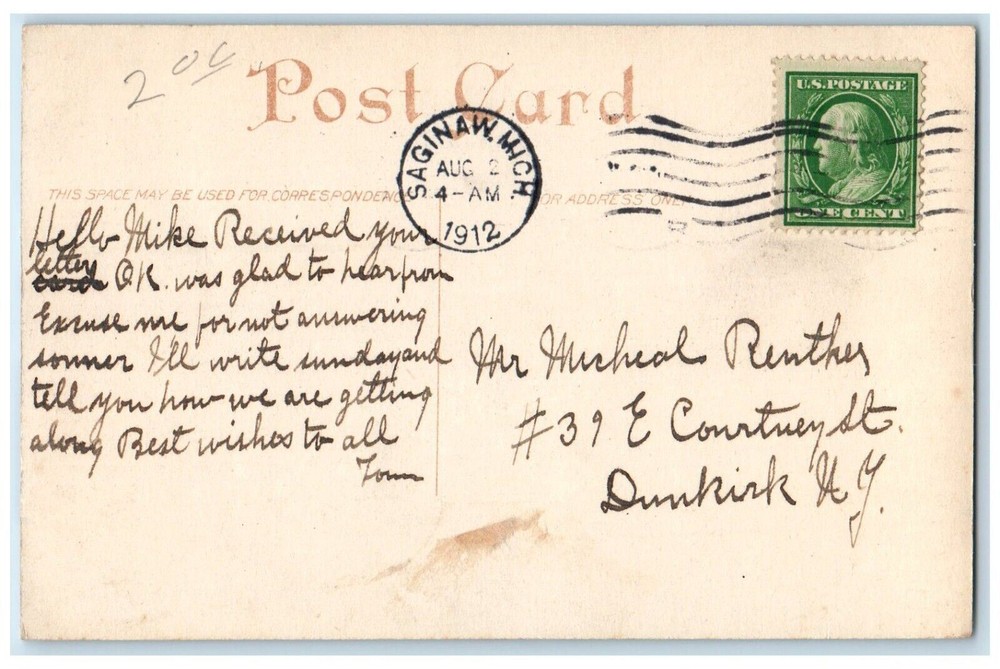 2 00
Post Card
U.S. POSTAGE
ONE CENT
SAGINAW, MICH.
AUG 2
4-AM
1912
THIS SPACE MAY BE USED FOR CORRESPONDENCE
FOR ADDRESS ONLY
Hello Mike Received your
letter
card OK. was glad to hear from
Excuse me for not answering
sonner I'll write sunday and
tell you how we are getting
along Best wishes to all
Mr Micheal Renther
#39 E Courtney St.
Dunkirk N.Y.